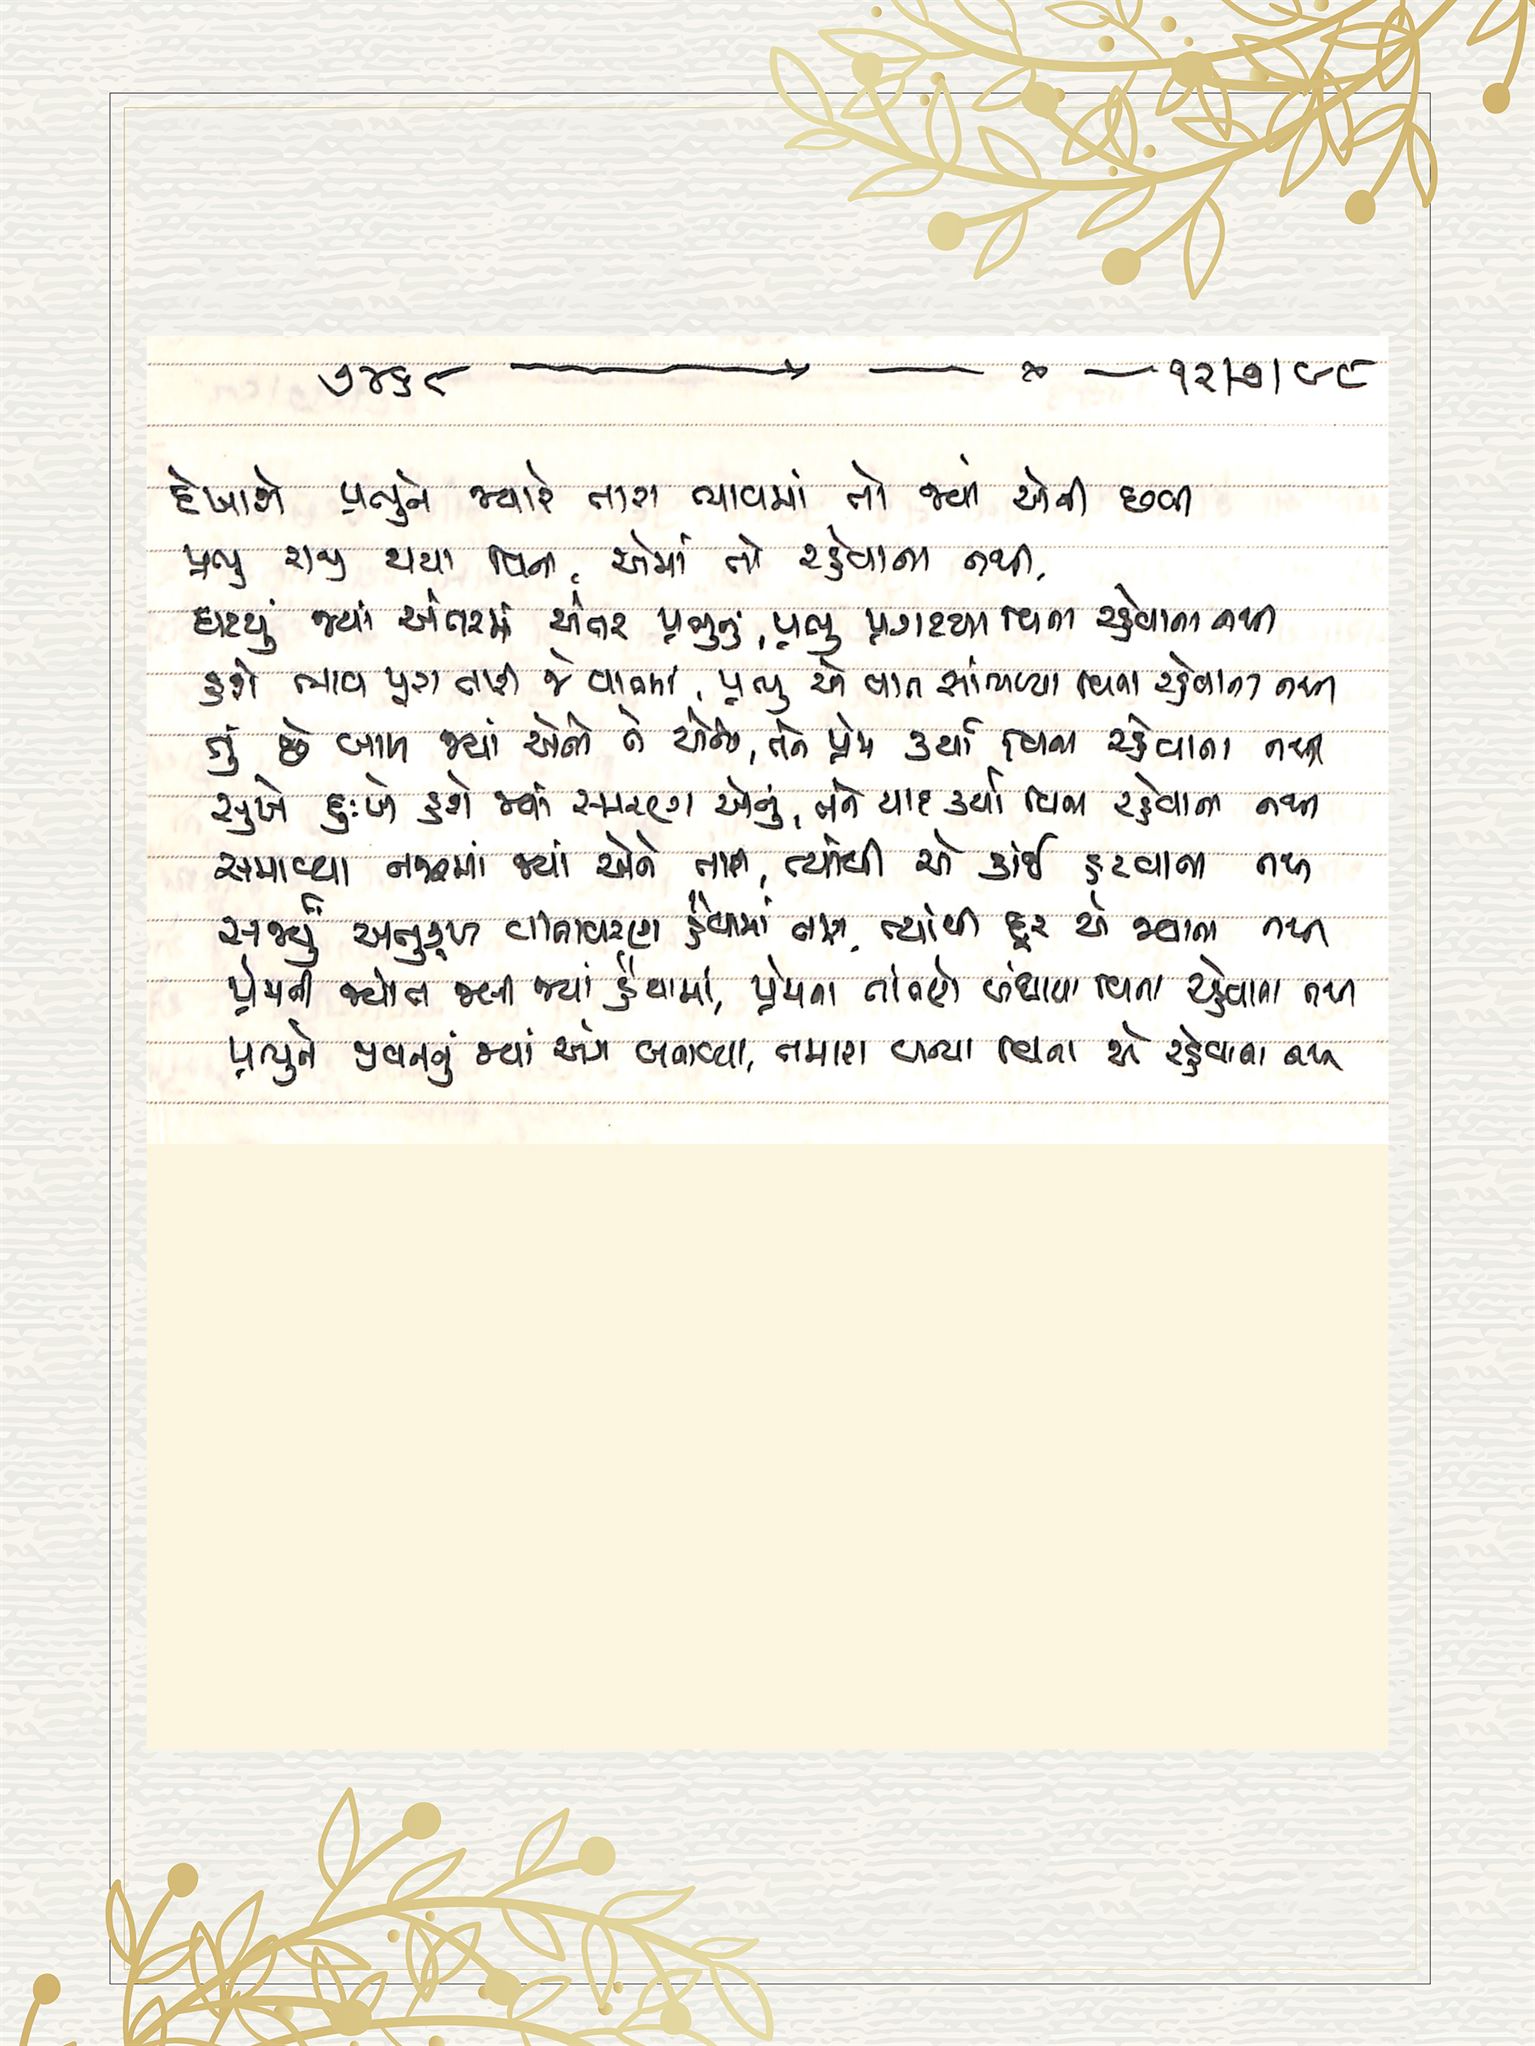 ૭૪૬૮ ૐ ૧૨/૭/૯૮
દેખાશે પ્રભુને જ્યારે તારા ભાવમાં તો જ્યાં એની છબી
પ્રભુ રાજી થયા વિના, એમાં તો રહેવાના નથી.
ઘટયું જ્યાં અંતરમાં અંતર પ્રભુનું, પ્રભુ પ્રગટયા વિના રહેવાના નથી
હશે ભાવ પૂરા તારી જે વાતમાં, પ્રભુ એ વાત સાંભળ્યા વિના રહેવાના નથી
તું છે બાળ જ્યાં એનો ને એનો, તને પ્રેમ કર્યા વિના રહેવાના નથી
સુખે દુઃખે હશે જ્યાં સ્મરણ એનું, તને યાદ કર્યા વિના રહેવાના નથી
સમાવ્યા નજરમાં જ્યાં એને તારી, ત્યાંથી એ કાંઈ હટવાના નથી
સર્જ્યું અનુકૂળ વાતાવરણ હૈયામાં, ત્યાંથી દૂર એ જવાના નથી
પ્રેમની જ્યોત જલી જ્યાં હૈયામાં, પ્રેમના તાંતણે બંધાયા વિના રહેવાના નથી
પ્રભુને જીવનનું જ્યાં અંગ બનાવ્યા, તમારા બન્યા વિના એ રહેવાના નથી